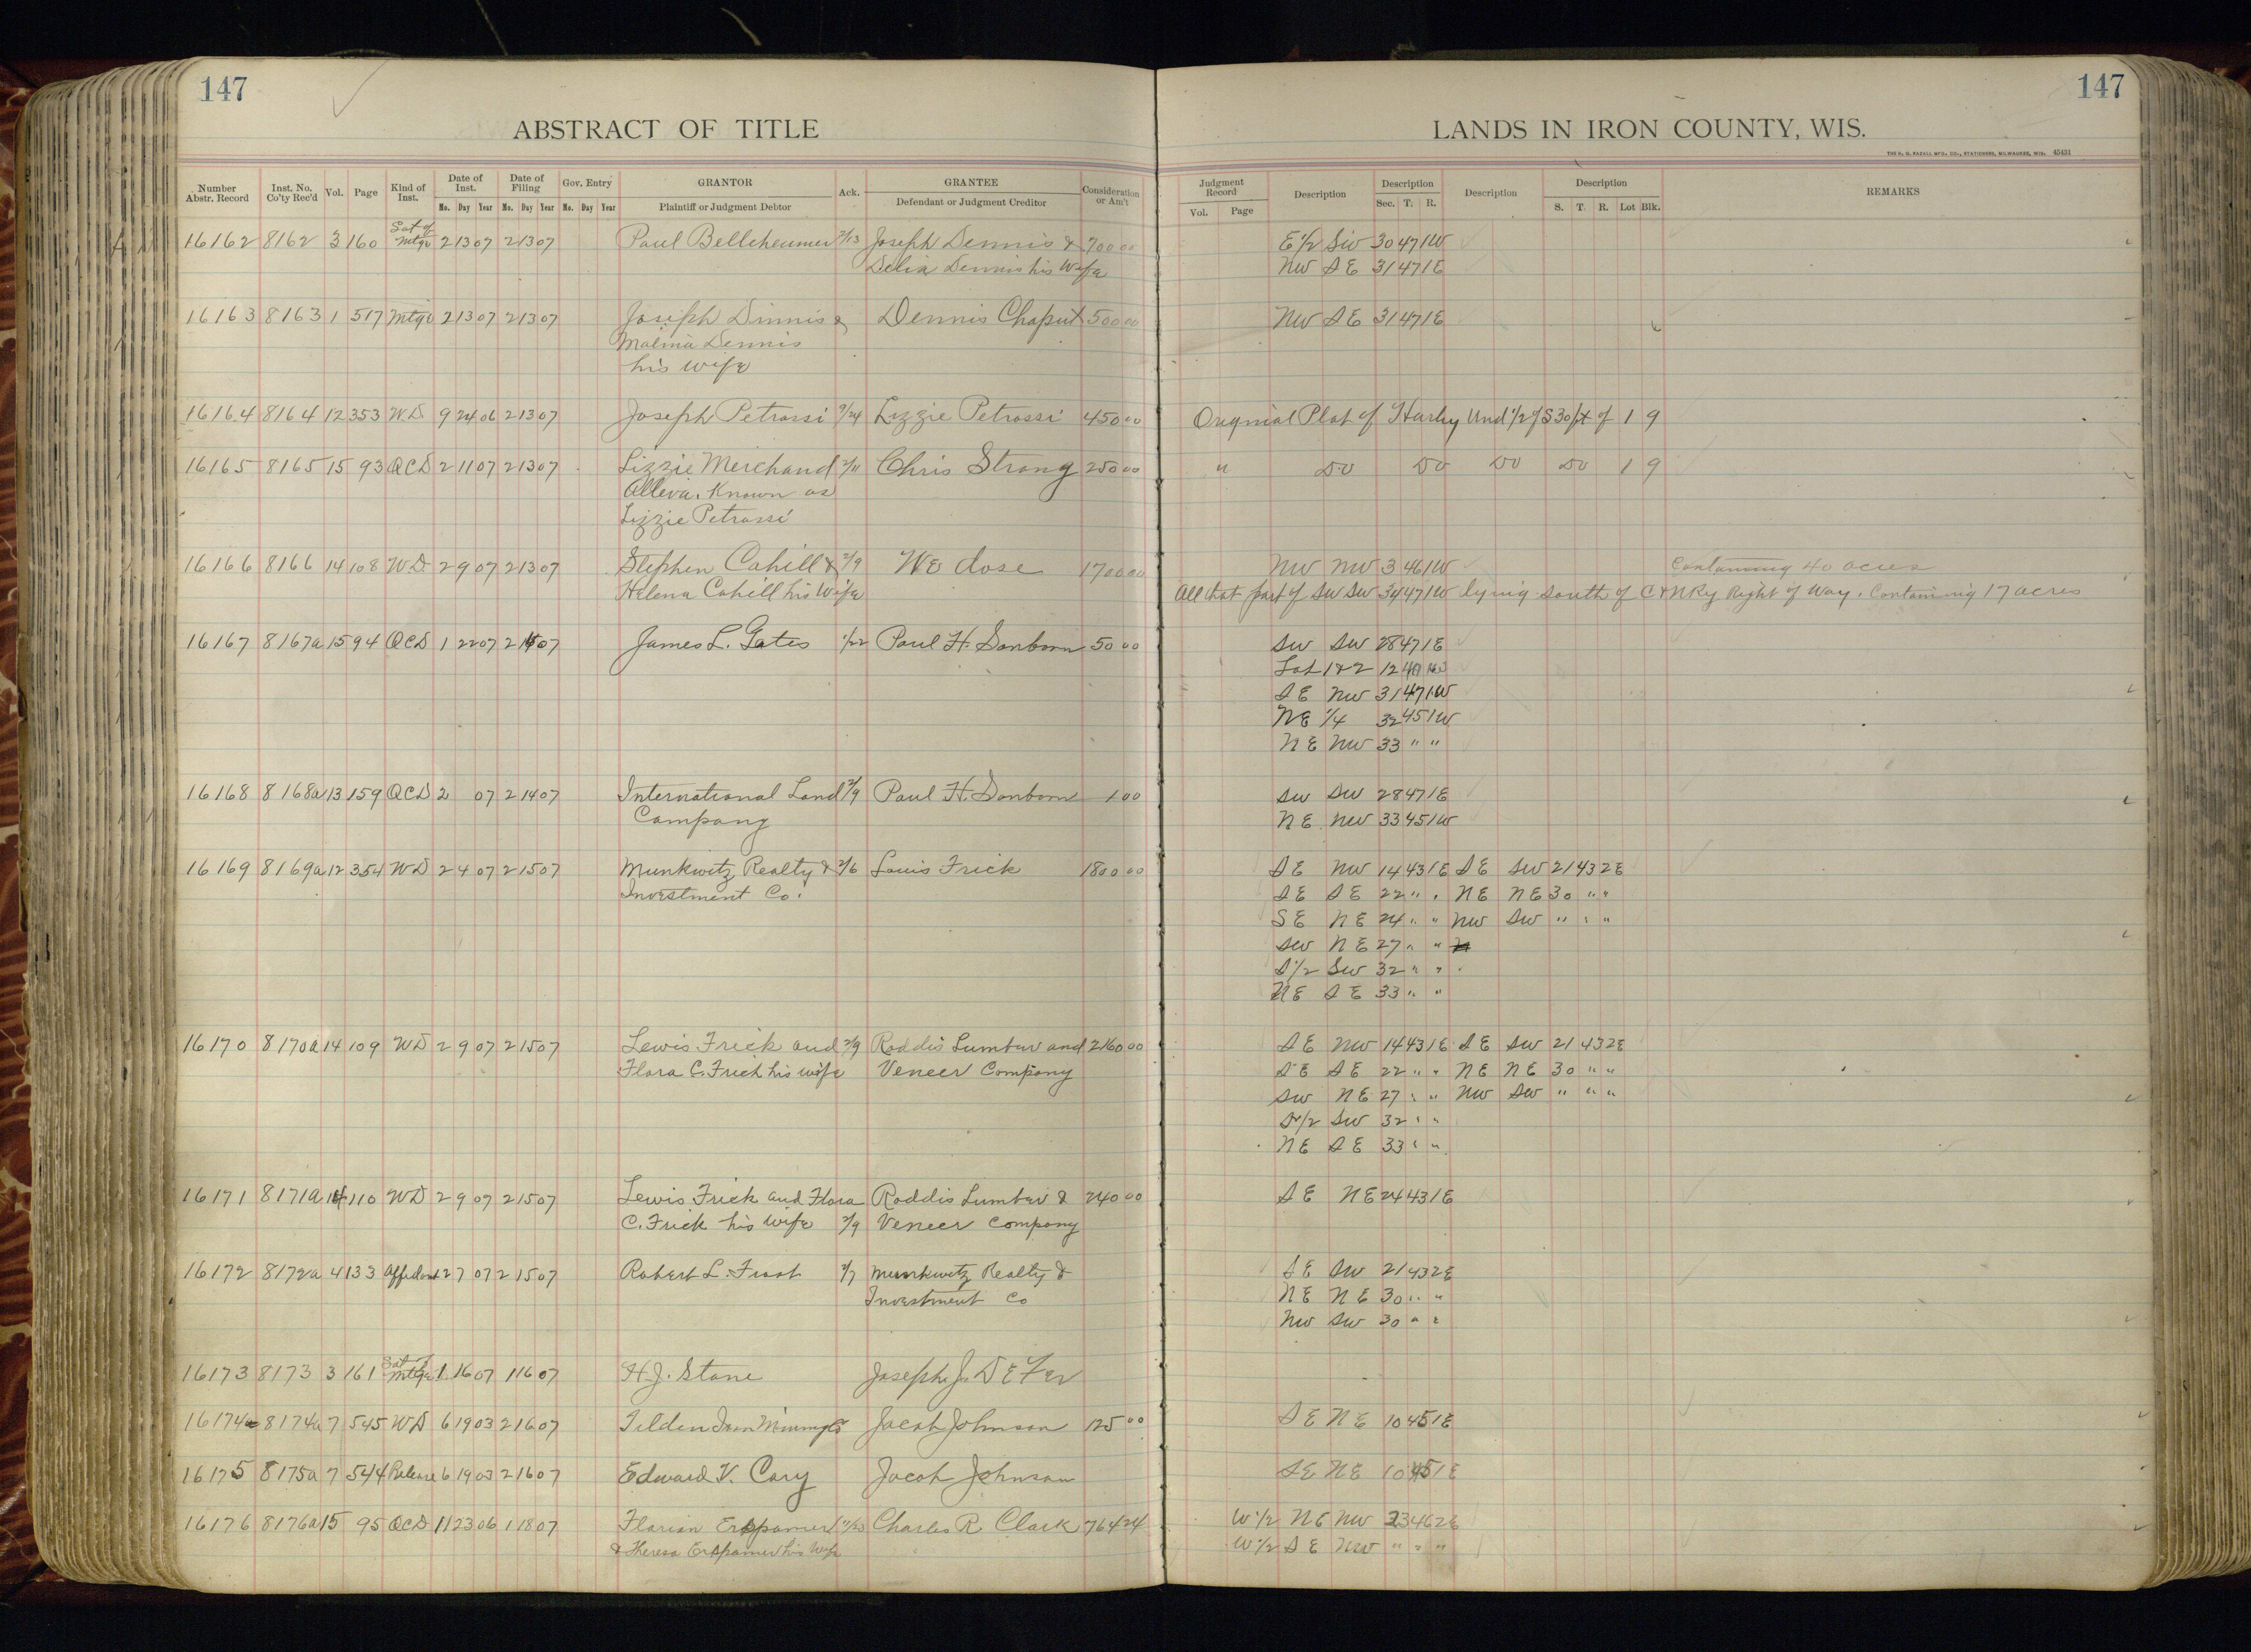 147
147
ABSTRACT OF TITLE
LANDS IN IRON COUNTY, WIS.
THE H. G. RAZALL MFG. CO., STATIONERS, MILWAUKEE, WIS. 45431
Number Abstr. Record | Inst. No. Co'ty Rec'd | Vol. | Page | Kind of Inst. | Date of Inst. Mo. Day Year | Date of Filing Mo. Day Year | Gov. Entry Mo. Day Year | GRANTOR Plaintiff or Judgment Debtor | Ack. | GRANTEE Defendant or Judgment Creditor | Consideration or Am't | Judgment Record Vol. Page | Description | Description Sec. T. R. | Description | Description S. T. R. Lot Blk. | REMARKS
16162 8162 3 160 Sat of Mtge 2 13 07 2 13 07 Paul 2/13 Joseph Dennis & 700 00 E 1/2 SW 30 47 1W
Delia Dennis his wife NW SE 31 47 1E
16163 8163 1 517 Mtge 2 13 07 2 13 07 Joseph Dinnis & Dennis Chaput 500 00 NW SE 31 47 1E
Malina Dennis
his wife
16164 8164 12 353 W.D. 9 24 06 2 13 07 Joseph Petrossi 9/24 Lizzie Petrossi 450 00 Orignial Plat of Hurley Und 1/2 of S 30 ft of 1 9
16165 8165 15 93 QCD 2 11 07 2 13 07 Lizzie Merchand 2/11 Chris Strong 250 00 " Do Do Do Do 1 9
Known as
Lizzie Petrossi
16166 8166 14 108 W.D. 2 9 07 2 13 07 Stephen Cahill & 2/9 1700 00 NW NW 3 46 1W Containing 40 acres
Helena Cahill his wife All that part of SW SW 34 47 1W lying south of C & N Ry Right of Way. Containing 17 acres
16167 8167a 15 94 QCD 1 22 07 2 14 07 James L. Gates 1/22 Paul H. Sanborn 50 00 SW SW 28 47 1E
Lot 1 & 2 12
SE NW 31 47 1W
NE 1/4 32 45 1W
NE NW 33 " "
16168 8168a 13 159 QCD 2 07 2 14 07 International Land 2/9 Paul H. Sanborn 1 00 SW SW 28 47 1E
Company NE NW 33 45 1W
16169 8169a 12 354 WD 2 4 07 2 15 07 Munkwitz Realty & 2/6 Louis Frick 1800 00 SE NW 14 43 1E SE SW 21 43 2E
Investment Co. SE SE 22 " " NE NE 30 " "
SE NE 24 " " NW SW " " "
SW NE 27 " "
S 1/2 SW 32 " "
NE SE 33 " "
16170 8170a 14 109 WD 2 9 07 2 15 07 Lewis Frick and 2/9 Roddis Lumber and 2160 00 SE NW 14 43 1E SE SW 21 43 2E
Flora C. Frick his wife Veneer Company SE SE 22 " " NE NE 30 " "
SW NE 27 " " NW SW " " "
S 1/2 SW 32 " "
NE SE 33 " "
16171 8171a 14 110 WD 2 9 07 2 15 07 Lewis Frick and Flora Roddis Lumber & 240 00 SE NE 24 43 1E
C. Frick his wife 2/9 Veneer Company
16172 8172a 4 133 2 7 07 2 15 07 Robert L. Frost 2/7 Munkwitz Realty & SE SW 21 43 2E
Investment Co NE NE 30 " "
NW SW 30 " "
16173 8173 3 161 Sat of Mtge 1 16 07 1 16 07 H.J. Stone Joseph J.
16174a 8174a 7 545 WD 6 19 03 2 16 07 Tilden Iron Mining Co Jacob Johnson 125 00 SE NE 10 45 1E
16175 8175a 7 544 Release 6 19 03 2 16 07 Edward V. Cary Jacob Johnson SE NE 10 45 1E
16176 8176a 15 95 QCD 11 23 06 1 18 07 Florian Erspamer 11/23 Charles R. Clark 764 24 W 1/2 NE NW 23 46 2E
& Theresa Erspamer his wife W 1/2 SE NW " " "